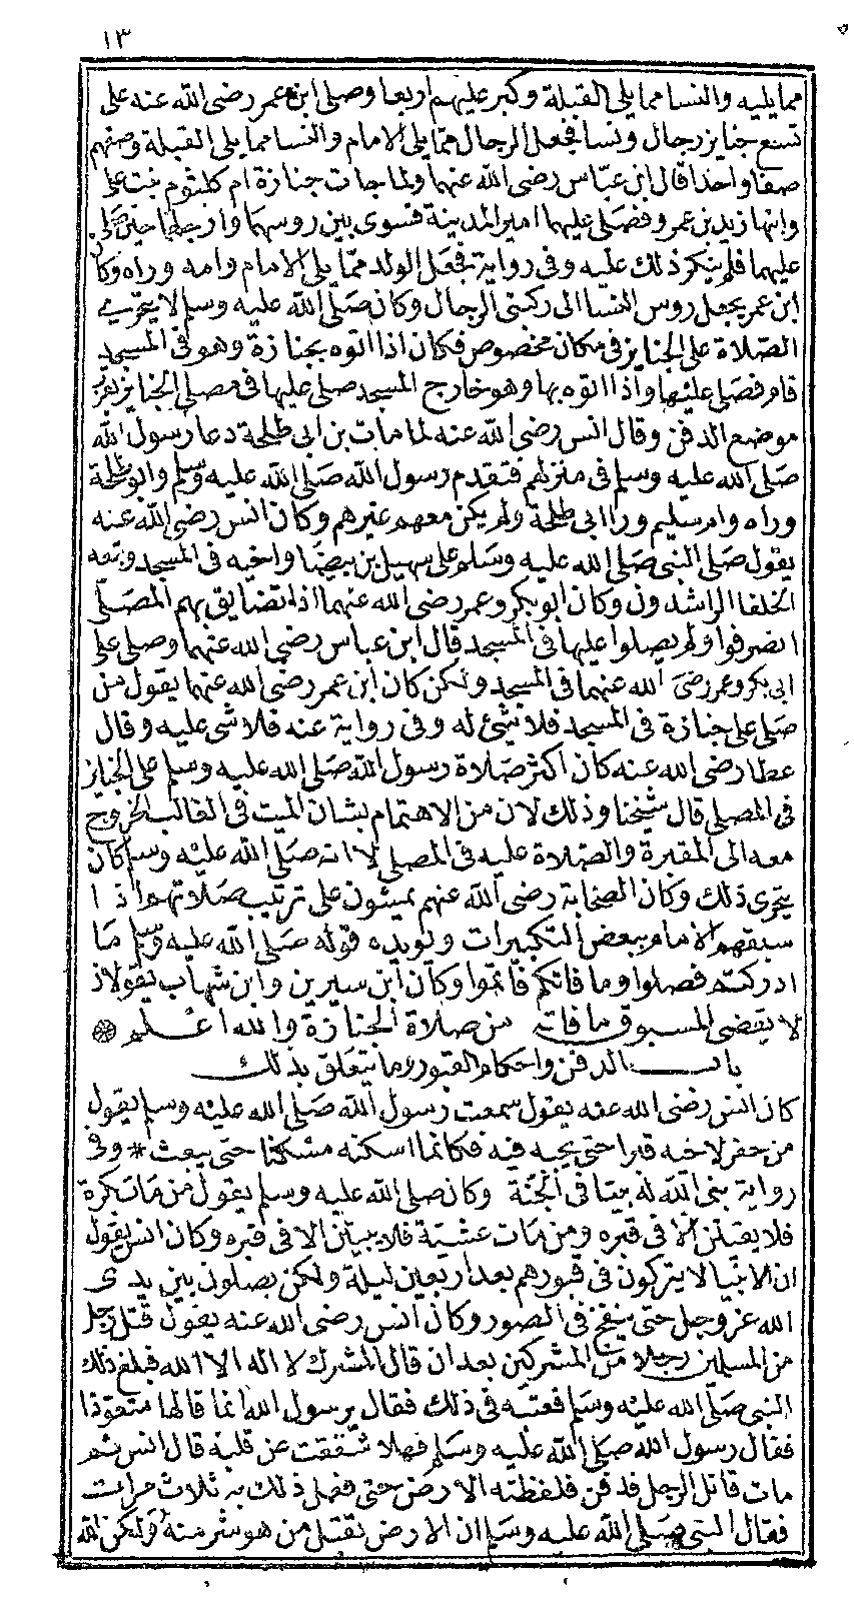 ١٣
مما يليه والنسا مما يلى القبلة وكبر عليهم اربعا وصلى ابن عمر رضى الله عنه على
تسع جنايز رجال ونسا فجعل الرجال مما يلى الامام والنسا مما يلى القبلة وصفهم
صفا واحدا قال ابن عباس رضى الله عنهما ولما جات جنازة ام كلثوم بنت على
وابنها زيد بن عمر وفصلى عليهما امير المدينة فسوى بين روسهما وارجلهما حين صلى
عليهما فلم ينكر ذلك عليه وفى رواية فجعل الولد مما يلى الامام وامه وراه وكان
ابن عمر يجعل روس النسا الى ركبتى الرجال وكان صلى الله عليه وسلم لا يتحرى
الصلاة على الجنايز فى مكان مخصوص فكان اذا اتوه بجنازة وهو فى المسجد
قام فصلى عليها واذا اتوه بها وهو خارج المسجد صلى عليها فى مصلى الجنايز بقرب
موضع الدفن وقال انس رضى الله عنه لما مات بن ابى طلحة دعا رسول الله
صلى الله عليه وسلم فى منزلهم فتقدم رسول الله صلى الله عليه وسلم وابو طلحة
وراه وام سليم ورا ابى طلحة ولم يكن معهم غيرهم وكان انس رضى الله عنه
يقول صلى النبى صلى الله عليه وسلم على سهيل بن بيضا واخيه فى المسجد وتبعه
الخلفا الراشدون وكان ابو بكر وعمر رضى الله عنهما اذا تضايق بهم المصلى
انصرفوا ولم يصلوا عليها فى المسجد قال ابن عباس رضى الله عنهما وصلى على
ابى بكر وعمر رضى الله عنهما فى المسجد ولكن كان ابن عمر رضى الله عنهما يقول من
صلى على جنازة فى المسجد فلا شئ له وفى رواية عنه فلا شى عليه وقال
عطا رضى الله عنه كان اكثر صلاة رسول الله صلى الله عليه وسلم على الجنايز
فى المصلى قال شيخنا وذلك لان من الاهتمام بشان الميت فى الغالب الخروج
معه الى المقبرة والصلاة عليه فى المصلى لا انه صلى الله عليه وسلم كان
يتحرى ذلك وكان الصحابة رضى الله عنهم يمشون على ترتيب صلاتهم اذا
سبقهم الامام ببعض التكبيرات ويويده قوله صلى الله عليه وسلم ما
ادركتم فصلوا وما فاتكم فاتموا وكان ابن سيرين وابن شهاب يقولان
لا يقضى المسبوق ما فاته من صلاة الجنازة والله اعلم
باب الدفن واحكام القبور وما يتعلق بذلك
كان انس رضى الله عنه يقول سمعت رسول الله صلى الله عليه وسلم يقول
من حفر لاخيه قبرا حتى يجنه فيه فكانما اسكنه مسكنا حتى يبعث * وفى
رواية بنى الله له بيتا فى الجنة وكان صلى الله عليه وسلم يقول من مات بكرة
فلا يقيلن الا فى قبره ومن مات عشية فلا يبيتن الا فى قبره وكان انس يقول
ان الانبيا لا يتركون فى قبورهم بعد اربعين ليلة ولكن يصلون بين يدى
الله عز وجل حتى ينفخ فى الصور وكان انس رضى الله عنه يقول قتل رجل
من المسلمين رجلا من المشركين بعد ان قال المشرك لا اله الا الله فبلغ ذلك
النبى صلى الله عليه وسلم فعتبه فى ذلك فقال يرسول الله انما قالها متعوذا
فقال رسول الله صلى الله عليه وسلم فهلا شققت عن قلبه قال انس ثم
مات قاتل الرجل فدفن فلفظته الارض حتى فعل ذلك به ثلاث مرات
فقال النبى صلى الله عليه وسلم ان الارض تقبل من هو شر منه ولكن الله